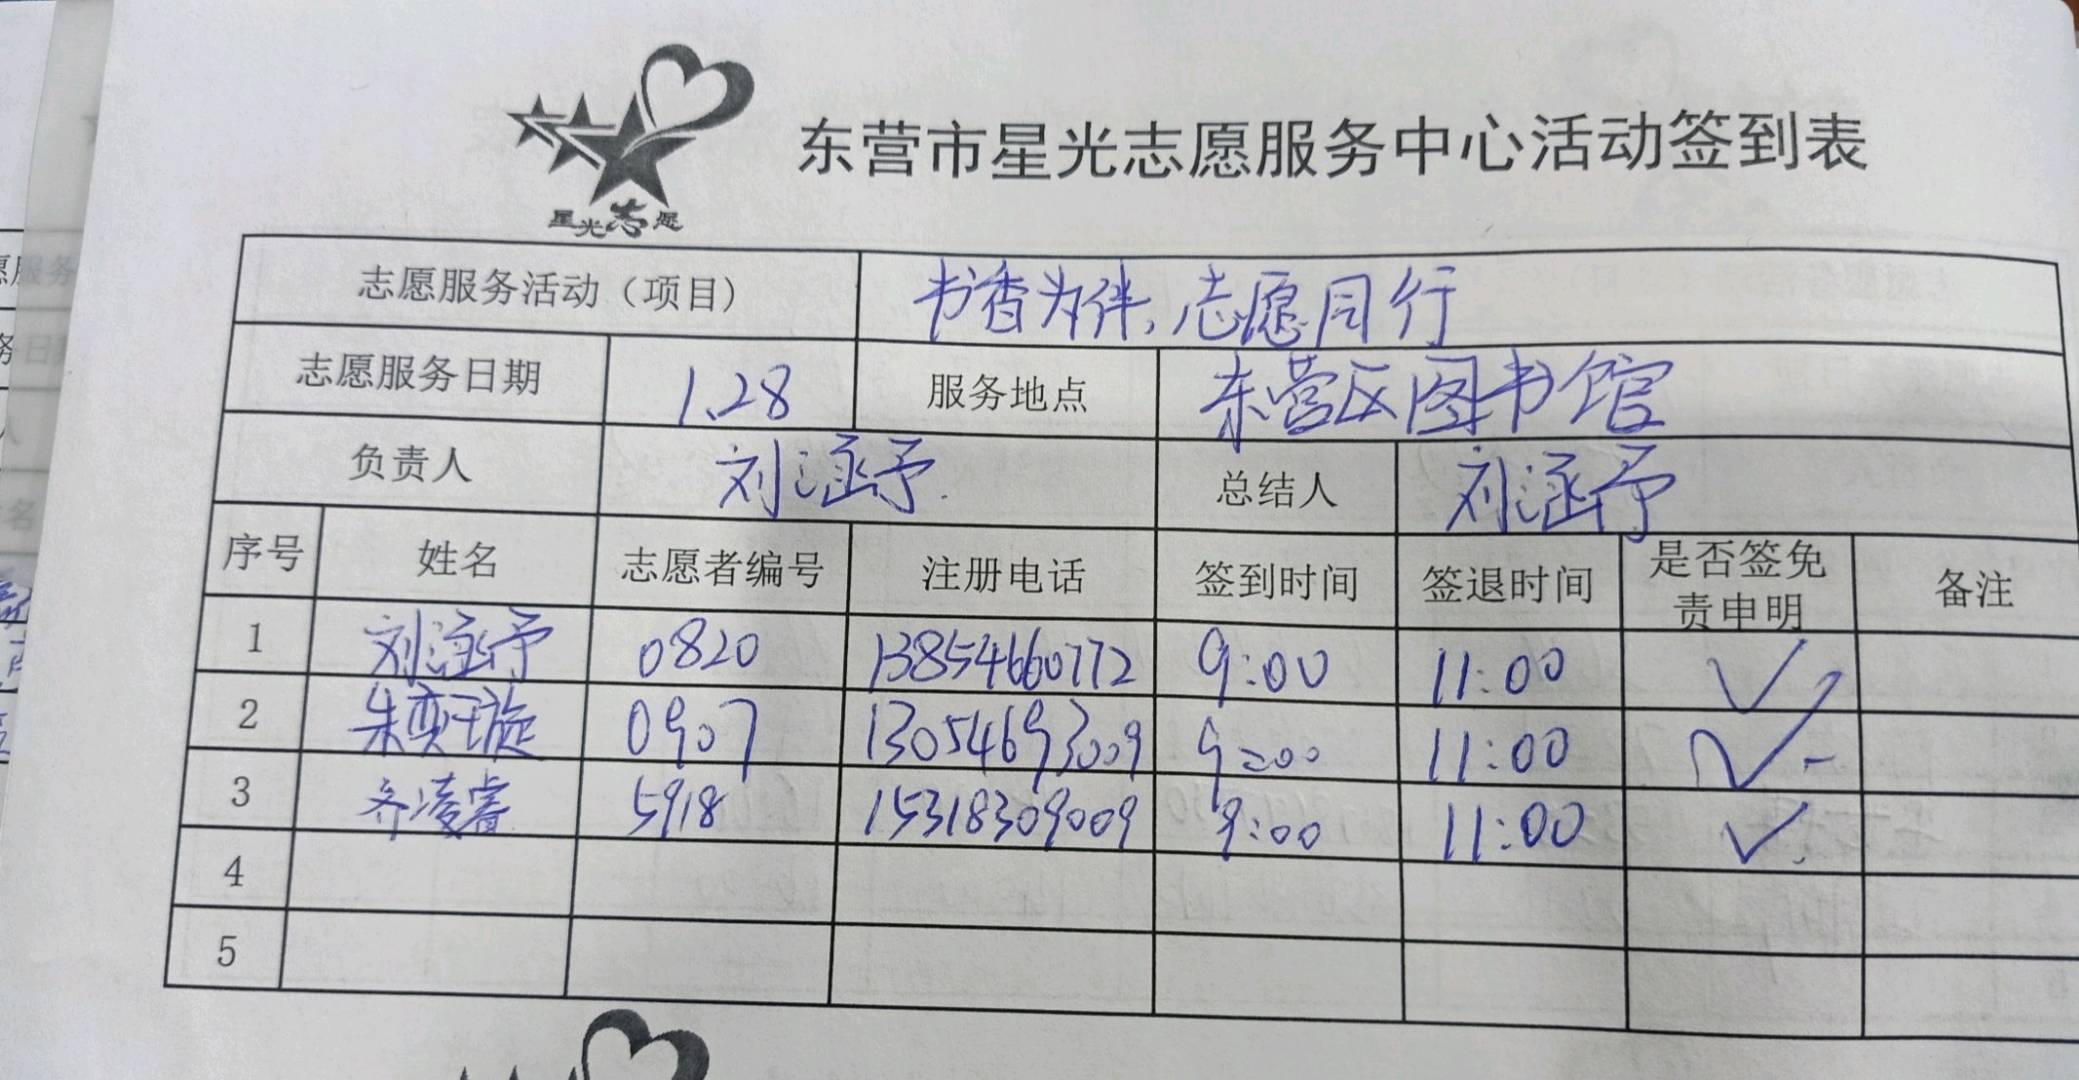 星光志愿
东营市星光志愿服务中心活动签到表
志愿服务活动（项目） 书香为伴，志愿同行
志愿服务日期 1.28 服务地点 东营区图书馆
负责人 刘涵予 总结人 刘涵予
序号 姓名 志愿者编号 注册电话 签到时间 签退时间 是否签免责申明 备注
1 刘涵予 0820 13854660772 9:00 11:00 ✓
2 朱奕璇 0907 13054693009 9:00 11:00 ✓
3 齐凌睿 5918 15318309009 9:00 11:00 ✓
4
5